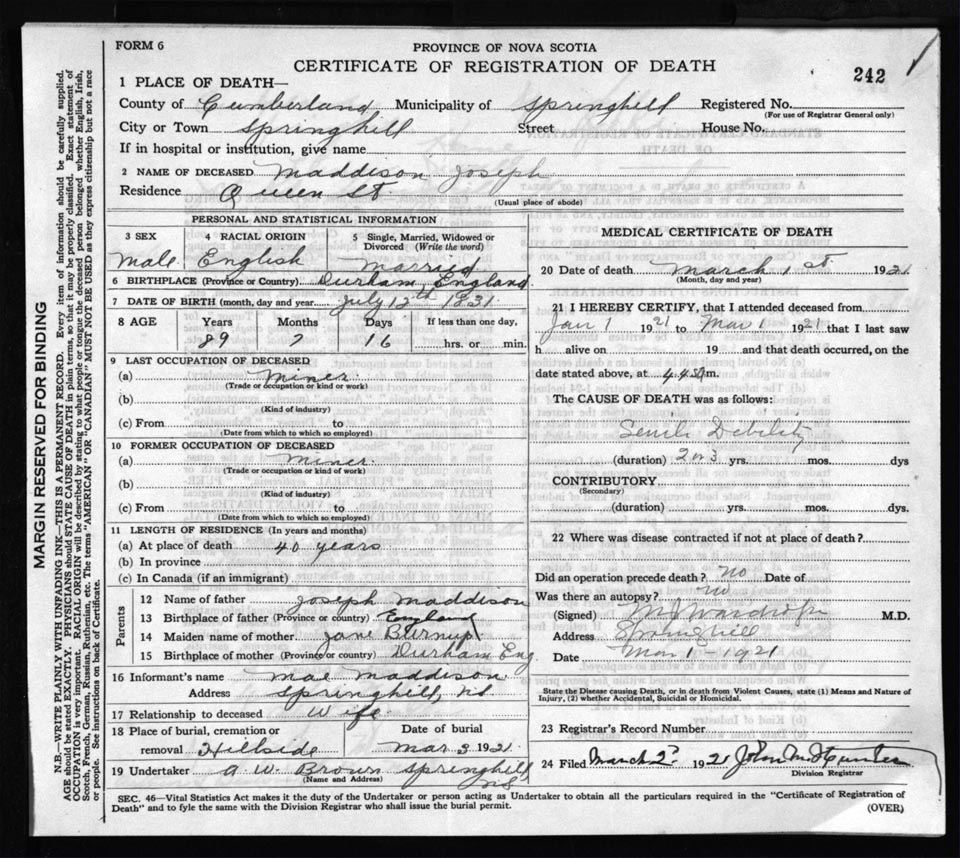 FORM 6
PROVINCE OF NOVA SCOTIA
CERTIFICATE OF REGISTRATION OF DEATH
242
1 PLACE OF DEATH—
County of Cumberland Municipality of Springhill Registered No.
(For use of Registrar General only)
City or Town Springhill Street House No.
If in hospital or institution, give name
2 NAME OF DECEASED Maddison Joseph
Residence Queen St
(Usual place of abode)
PERSONAL AND STATISTICAL INFORMATION
3 SEX 4 RACIAL ORIGIN 5 Single, Married, Widowed or Divorced (Write the word)
Male English Married
6 BIRTHPLACE (Province or Country) Durham, England
7 DATE OF BIRTH (month, day and year) July 12th 1831
8 AGE Years Months Days If less than one day,
89 7 16 hrs. or min.
9 LAST OCCUPATION OF DECEASED
(a) Miner
(Trade or occupation or kind or work)
(b)
(Kind of industry)
(c) From to
(Date from which to which so employed)
10 FORMER OCCUPATION OF DECEASED
(a) Miner
(Trade or occupation or kind of work)
(b)
(Kind of industry)
(c) From to
(Date from which to which so employed)
11 LENGTH OF RESIDENCE (In years and months)
(a) At place of death 40 years
(b) In province
(c) In Canada (if an immigrant)
Parents
12 Name of father Joseph Maddison
13 Birthplace of father (Province or country) England
14 Maiden name of mother Jane Burnup
15 Birthplace of mother (Province or country) Durham Eng
16 Informant's name Mae Maddison
Address Springhill, NS
17 Relationship to deceased Wife
18 Place of burial, cremation or Date of burial
removal Hillside Mar 3 1921
19 Undertaker A. W. Brown Springhill NS
(Name and Address)
MEDICAL CERTIFICATE OF DEATH
20 Date of death March 1st 1921
(Month, day and year)
21 I HEREBY CERTIFY, that I attended deceased from
Jan 1 1921 to Mar 1 1921 that I last saw
h alive on 19 and that death occurred, on the
date stated above, at m.
The CAUSE OF DEATH was as follows:
Senile Debility
(duration) 2 or 3 yrs. mos. dys
CONTRIBUTORY
(Secondary)
(duration) yrs. mos. dys.
22 Where was disease contracted if not at place of death?
Did an operation precede death? no Date of
Was there an autopsy? no
(Signed) M J Wardrope M.D.
Address Springhill
Date Mar 1 - 1921
State the Disease causing Death, or in death from Violent Causes, state (1) Means and Nature of
Injury, (2) whether Accidental, Suicidal or Homicidal.
23 Registrar's Record Number
24 Filed March 2nd 1921 John McHunter
Division Registrar
SEC. 46—Vital Statistics Act makes it the duty of the Undertaker or person acting as Undertaker to obtain all the particulars required in the "Certificate of Registration of
Death" and to fyle the same with the Division Registrar who shall issue the burial permit.
(OVER)
MARGIN RESERVED FOR BINDING
N.B.—WRITE PLAINLY WITH UNFADING INK—THIS IS A PERMANENT RECORD. Every item of information should be carefully supplied.
AGE should be stated EXACTLY. PHYSICIANS should STATE CAUSE OF DEATH in plain terms, so that it may be properly classified. Exact statement of
OCCUPATION is very important. RACIAL ORIGIN will be described by stating to what people or tongue the deceased person belonged whether English, Irish,
Scotch, French, German, Russian, Ruthenian, etc. The terms "AMERICAN" OR "CANADIAN" MUST NOT BE USED as they express citizenship but not a race
or people. See instructions on back of Certificate.